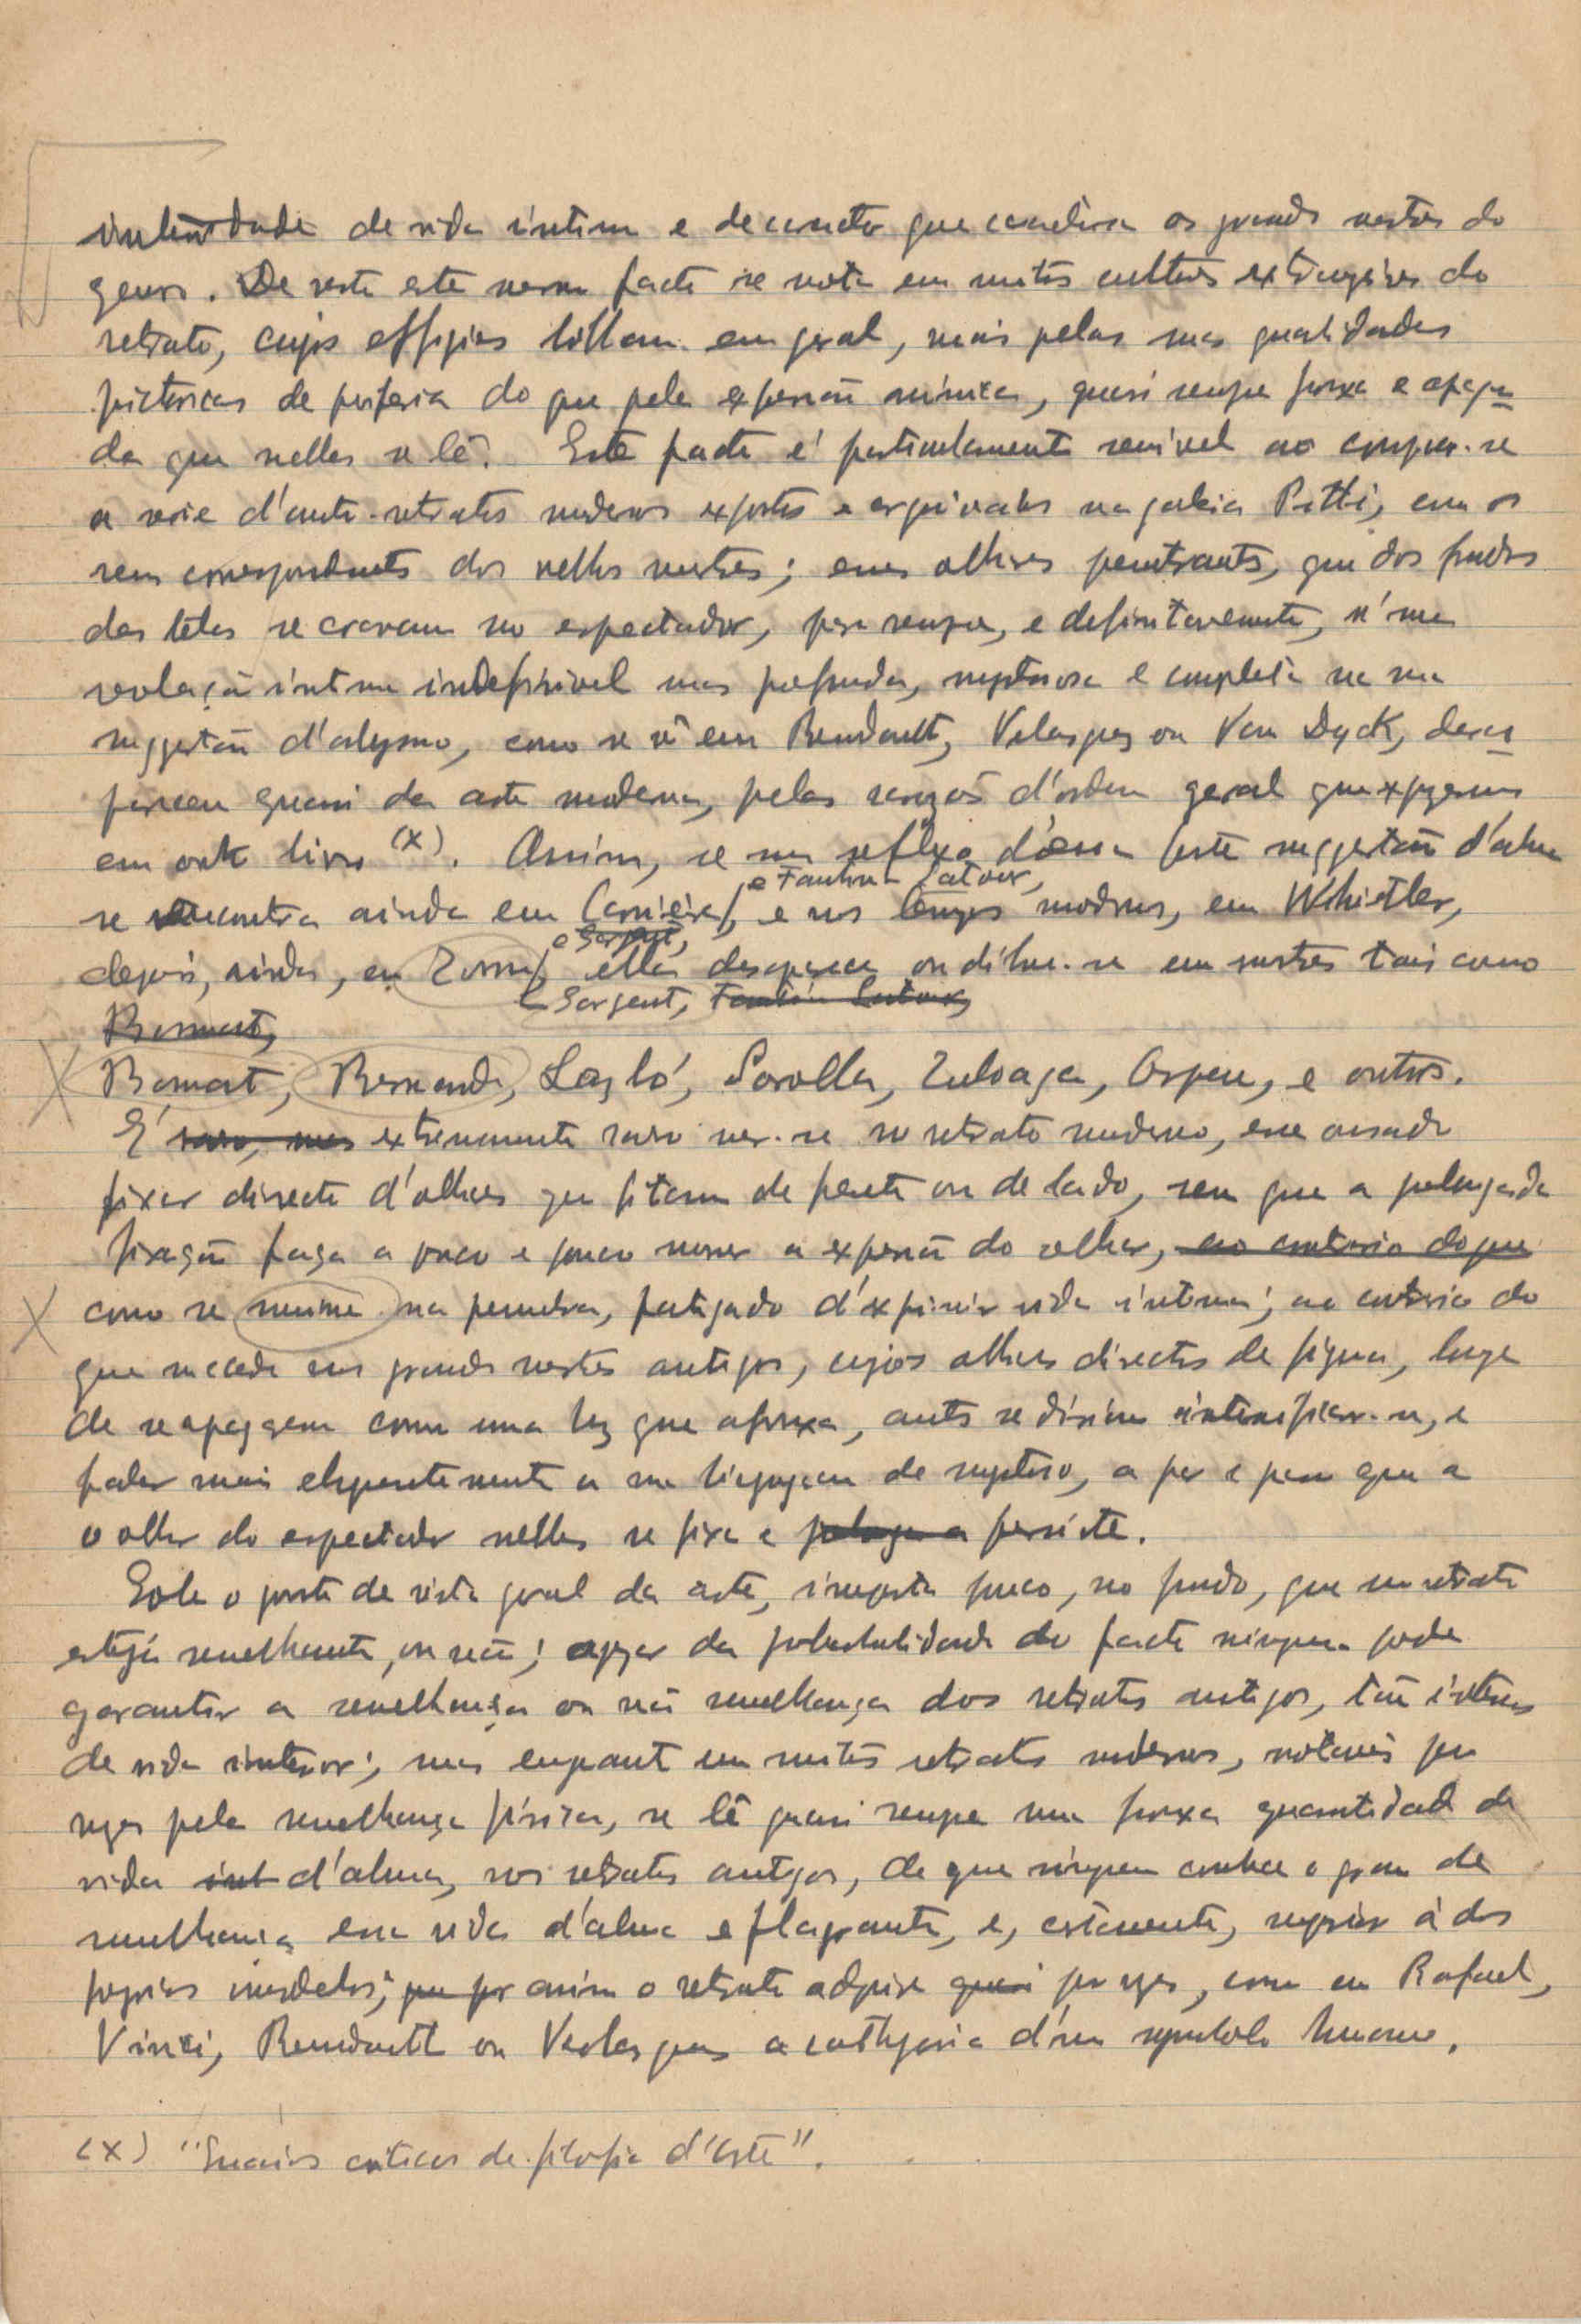 intensidade de vida intima e de caracter que caracterisa os grandes mestres do
genero. De resto este mesmo facto se nota em muitos cultores extrangeiros do
retrato, cujas effigies brilham em geral, mais pelas suas qualidades
pictoricas de periferia do que pela expressão animica, quasi sempre frouxa e apaga-
da que nelles se lê. Este facto é particularmente sensivel ao comparar-se
a serie d'auto-retratos modernos expostos e archivados na galeria Pitti, com os
seus correspondentes dos velhos mestres; esses olhares penetrantes, que dos fundos
das telas se cravam no espectador, para sempre, e definitivamente, n'uma
revelação intima indefinivel mas profunda, mysteriosa e completa na sua
suggestão d'abysmo, como se vê em Rembrandt, Velasquez ou Van Dyck, desap-
pareceu quasi da arte moderna, pelas razões d'ordem geral que expuzemos
em outro livro (x). Assim, se um reflexo d'essa forte suggestão d'alma
e Fantin Latour,
se encontra ainda em Carrière, e nos tempos modernos, em Whistler,
e Sargent,
depois, ainda, em Zorn, ella desaparece ou dilue-se em mestres tais como
Sargent, Fantin Latour,
Bonnat,
Bonnat, Besnard, Lazló, Sorolla, Zuloaga, Orpen, e outros.
É raro, mas extremamente raro ver-se no retrato moderno, esse ousado
fixar directo d'olhos que fitam de frente ou de lado, sem que a prolongada
fixação faça a pouco e pouco morrer a expressão do olhar, ao contrario do que
como se sumisse na penumbra, fatigado d'exprimir vida intima; ao contrario do
que succede nos grandes mestres antigos, cujos olhares directos de figura, longe
de se apagarem como uma luz que afrouxa, antes se diriam intensificar-se, e
falar mais eloquentemente a sua linguagem de mysterio, a par e passo que a
o olhar do espectador nelles se fixa e prolonga a persiste.
Sob o ponto de vista geral da arte, importa pouco, no fundo, que um retrato
esteja semelhante, ou não; apezar da probabilidade do facto ninguem pode
garantir a semelhança ou não semelhança dos retratos antigos, tão intensos
de vida interior; mas emquanto em muitos retratos modernos, notaveis por
vezes pela semelhança fisica, se lê quasi sempre uma frouxa quantidade de
vida int d'alma, nos retratos antigos, de que ninguem conhece o grau de
semelhança essa vida d'alma é flagrante, e, certamente, superior á dos
proprios modelos; que por assim o retrato adquire quasi por vezes, como em Rafael,
Vinci, Rembrandt ou Velasquez a cathegoria d'um symbolo humano.
(x) "Ensaios criticos de filosofia d'arte".